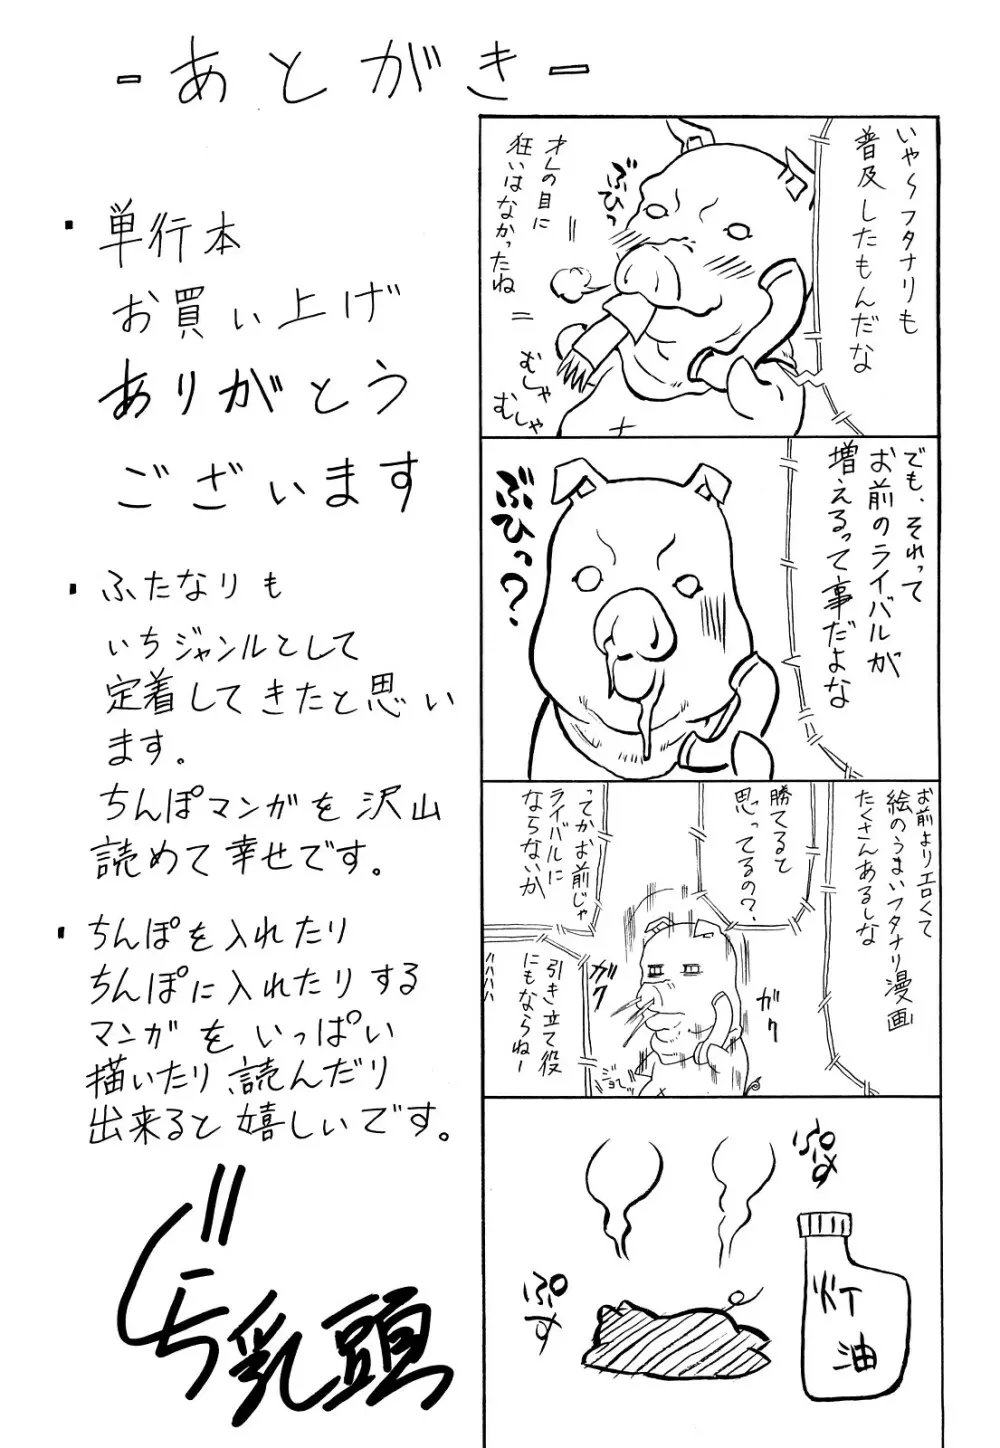 -あとがき-
・単行本
お買い上げ
ありがとう
ございます
・ふたなりも
いちジャンルとして
定着してきたと思い
ます。
ちんぽマンガを沢山
読めて幸せです。
・ちんぽを入れたり
ちんぽに入れたりする
マンガをいっぱい
描いたり、読んだり
出来ると嬉しいです。
乳頭
いや〜フタナリも
普及したもんだな
ぶひっ
オレの目に
狂いはなかったね
むしゃ
むしゃ
でも、それって
お前のライバルが
増えるって事だよな
ぶひっ?
お前よりエロくて
絵のうまいフタナリ漫画
たくさんあるしな
勝てると
思ってるの?
ってかお前じゃ
ライバルに
ならないか
引き立て役
にもならねー
ハハハハ
ガク
ガク
ジョワ
ぷす
ぷす
灯油